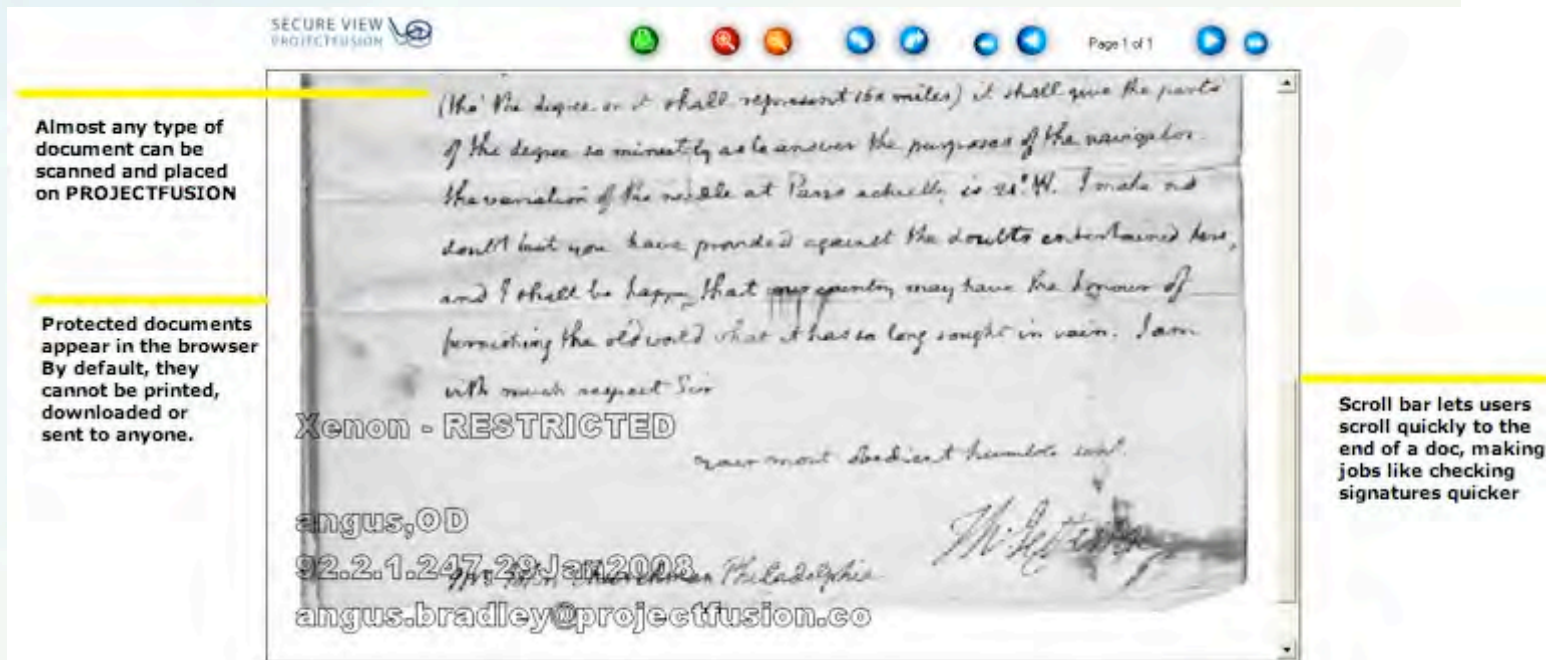 SECURE VIEW
PROJECTFUSION
Page 1 of 1
Almost any type of
document can be
scanned and placed
on PROJECTFUSION
Protected documents
appear in the browser
By default, they
cannot be printed,
downloaded or
sent to anyone.
(tho' the degree on it shall represent 160 miles) it shall give the parts
of the degree so minutely as to answer the purposes of the navigator.
the variation of the needle at Paris actually is 21° W. I make no
doubt but you have provided against the doubts entertained here,
and I shall be happy that our country may have the honour of
furnishing the old world what it has so long sought in vain. I am
with much respect Sir
Xenon - RESTRICTED
your most obedient humble servt
angus,OD
Th: Jefferson
92.2.1.247,29Jan2008
Philadelphia
angus.bradley@projectfusion.co
Scroll bar lets users
scroll quickly to the
end of a doc, making
jobs like checking
signatures quicker